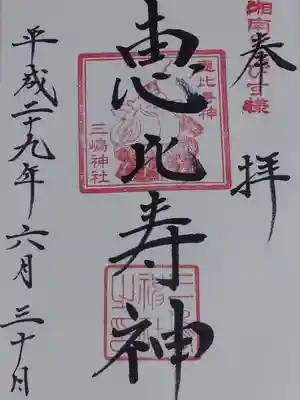 湘南ゑびす様
奉拝
恵比寿神
恵比寿神
三嶋神社
平成二十九年六月三十日